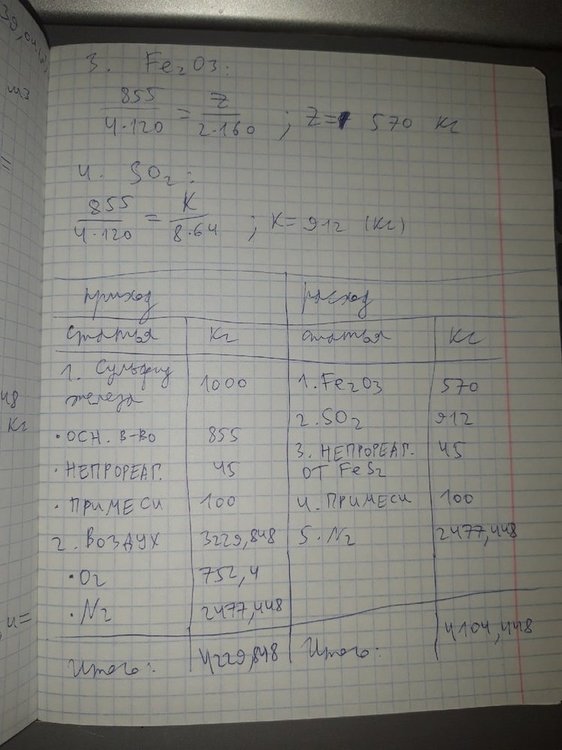 39,
м3
=
48
кг
, и=
3. Fe2O3:
855/4·120 = Z/2·160 ; Z= 570 кг
4. SO2:
855/4·120 = K/8·64 ; K= 912 (кг)
приход расход
статья кг статья кг
1. Сульфид железа 1000 1. Fe2O3 570
2. SO2 912
· ОСН. В-ВО 855 3. НЕПРОРЕАГ. ОТ FeS2 45
· НЕПРОРЕАГ. 45
· ПРИМЕСИ 100 4. ПРИМЕСИ 100
2. ВОЗДУХ 3229,848 5. N2 2477,448
· O2 752,4
· N2 2477,448
Итого: 4229,848 Итого: 4104,448